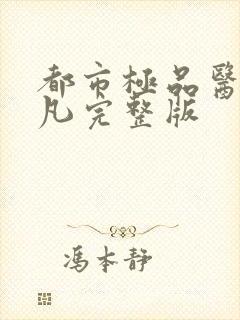 都市極品醫
凡完整版
馮本靜